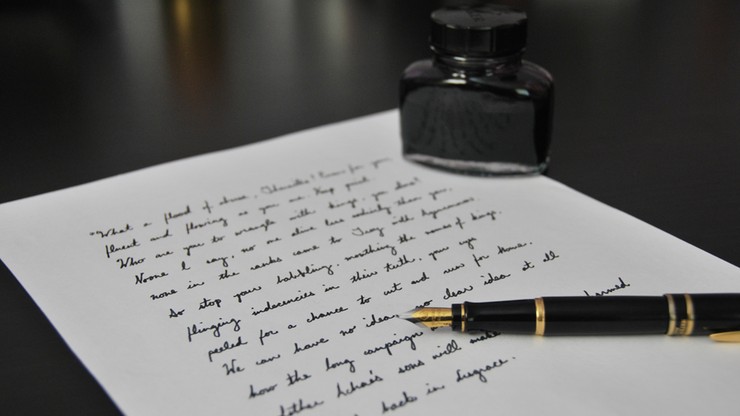 "What a flood of abuse, Thersites! Even for you,
fluent and flowing as you are. Keep quiet.
Who are you to wrangle with kings, you alone?
Noone I say, no one alive less soldierly than you,
none in the ranks came to Troy with Agamemnon.
So stop your babbling, mouthing the names of kings,
flinging indecencies in their teeth, your eyes
peeled for a chance to cut and run for home.
We can have no idea, no clear idea at all
how the long campaign
sons will make
back in disgrace.